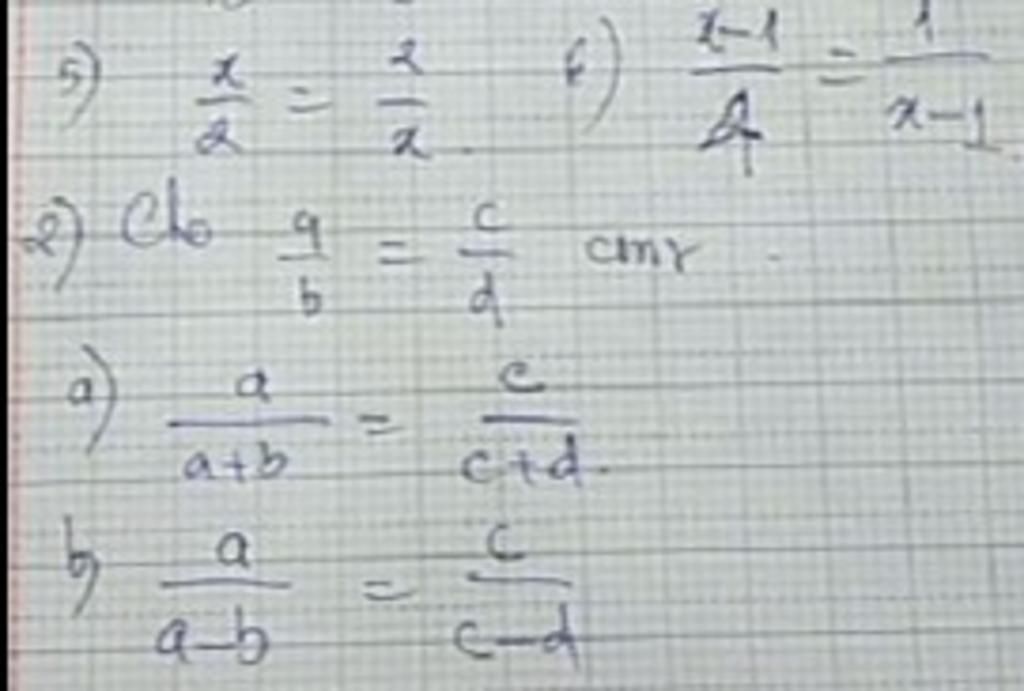 5) x/2 = 2/x. 6) x-1/4 = 1/x-1
2) Cho a/b = c/d cmr
a) a/a+b = c/c+d.
b) a/a-b = c/c-d